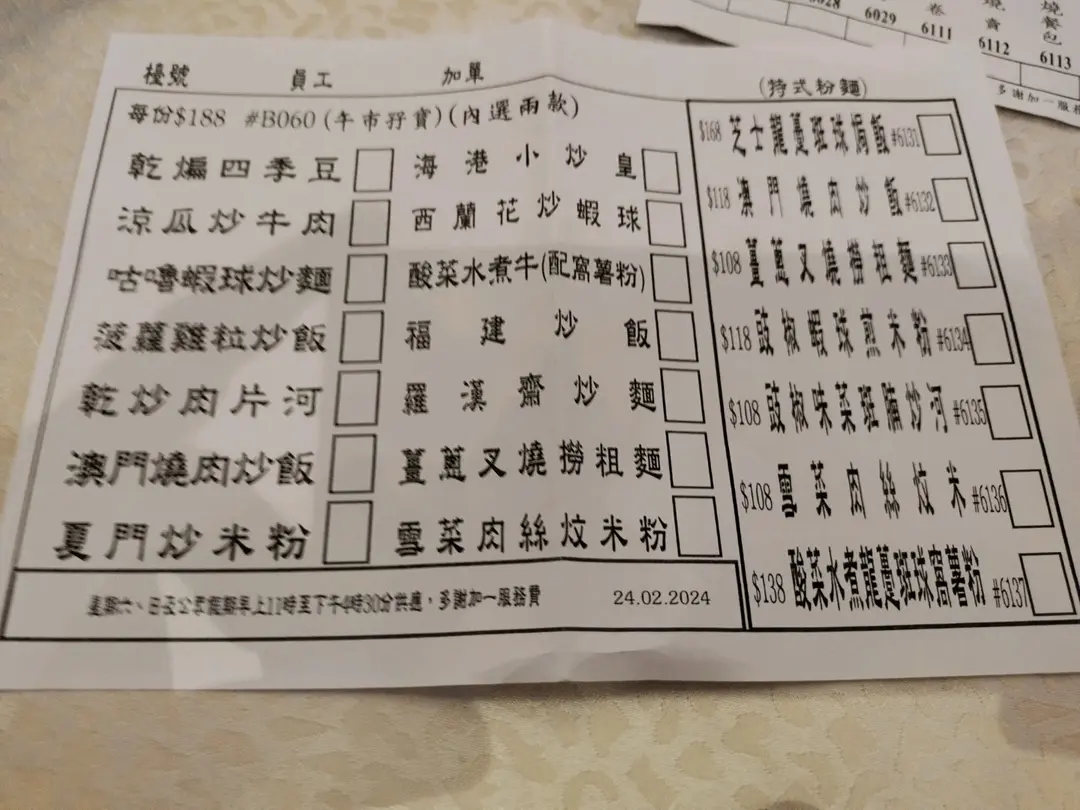 檯號 員工 加單
每份$188 #B060 (午市孖寶)(內選兩款)
乾煸四季豆 海港小炒皇
涼瓜炒牛肉 西蘭花炒蝦球
咕嚕蝦球炒麵 酸菜水煮牛(配窩薯粉)
菠蘿雞粒炒飯 福建炒飯
乾炒肉片河 羅漢齋炒麵
澳門燒肉炒飯 薑蔥叉燒撈粗麵
夏門炒米粉 雪菜肉絲炆米粉
星期六、日及公眾假期早上11時至下午4時30分供應，多謝加一服務費 24.02.2024
(特式粉麵)
$168 芝士龍躉班球焗飯 #6131
$118 澳門燒肉炒飯 #6132
$108 薑蔥叉燒撈粗麵 #6133
$118 豉椒蝦球煎米粉 #6134
$108 豉椒味菜班腩炒河 #6135
$108 雪菜肉絲炆米 #6136
$138 酸菜水煮龍躉班球窩薯粉 #6137
6028 6029 6111 6112 6113
卷
賣
燒餐包
多謝加一服務